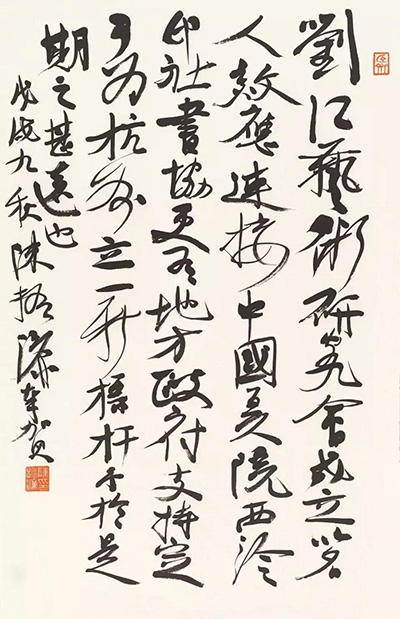 劉江藝術研究會成立名
人效應連接中國美院西泠
印社書協更有地方政府支持定
可為杭州立一新標杆予於是
期之甚遠也
戊戌九秋陳振濂奉賀